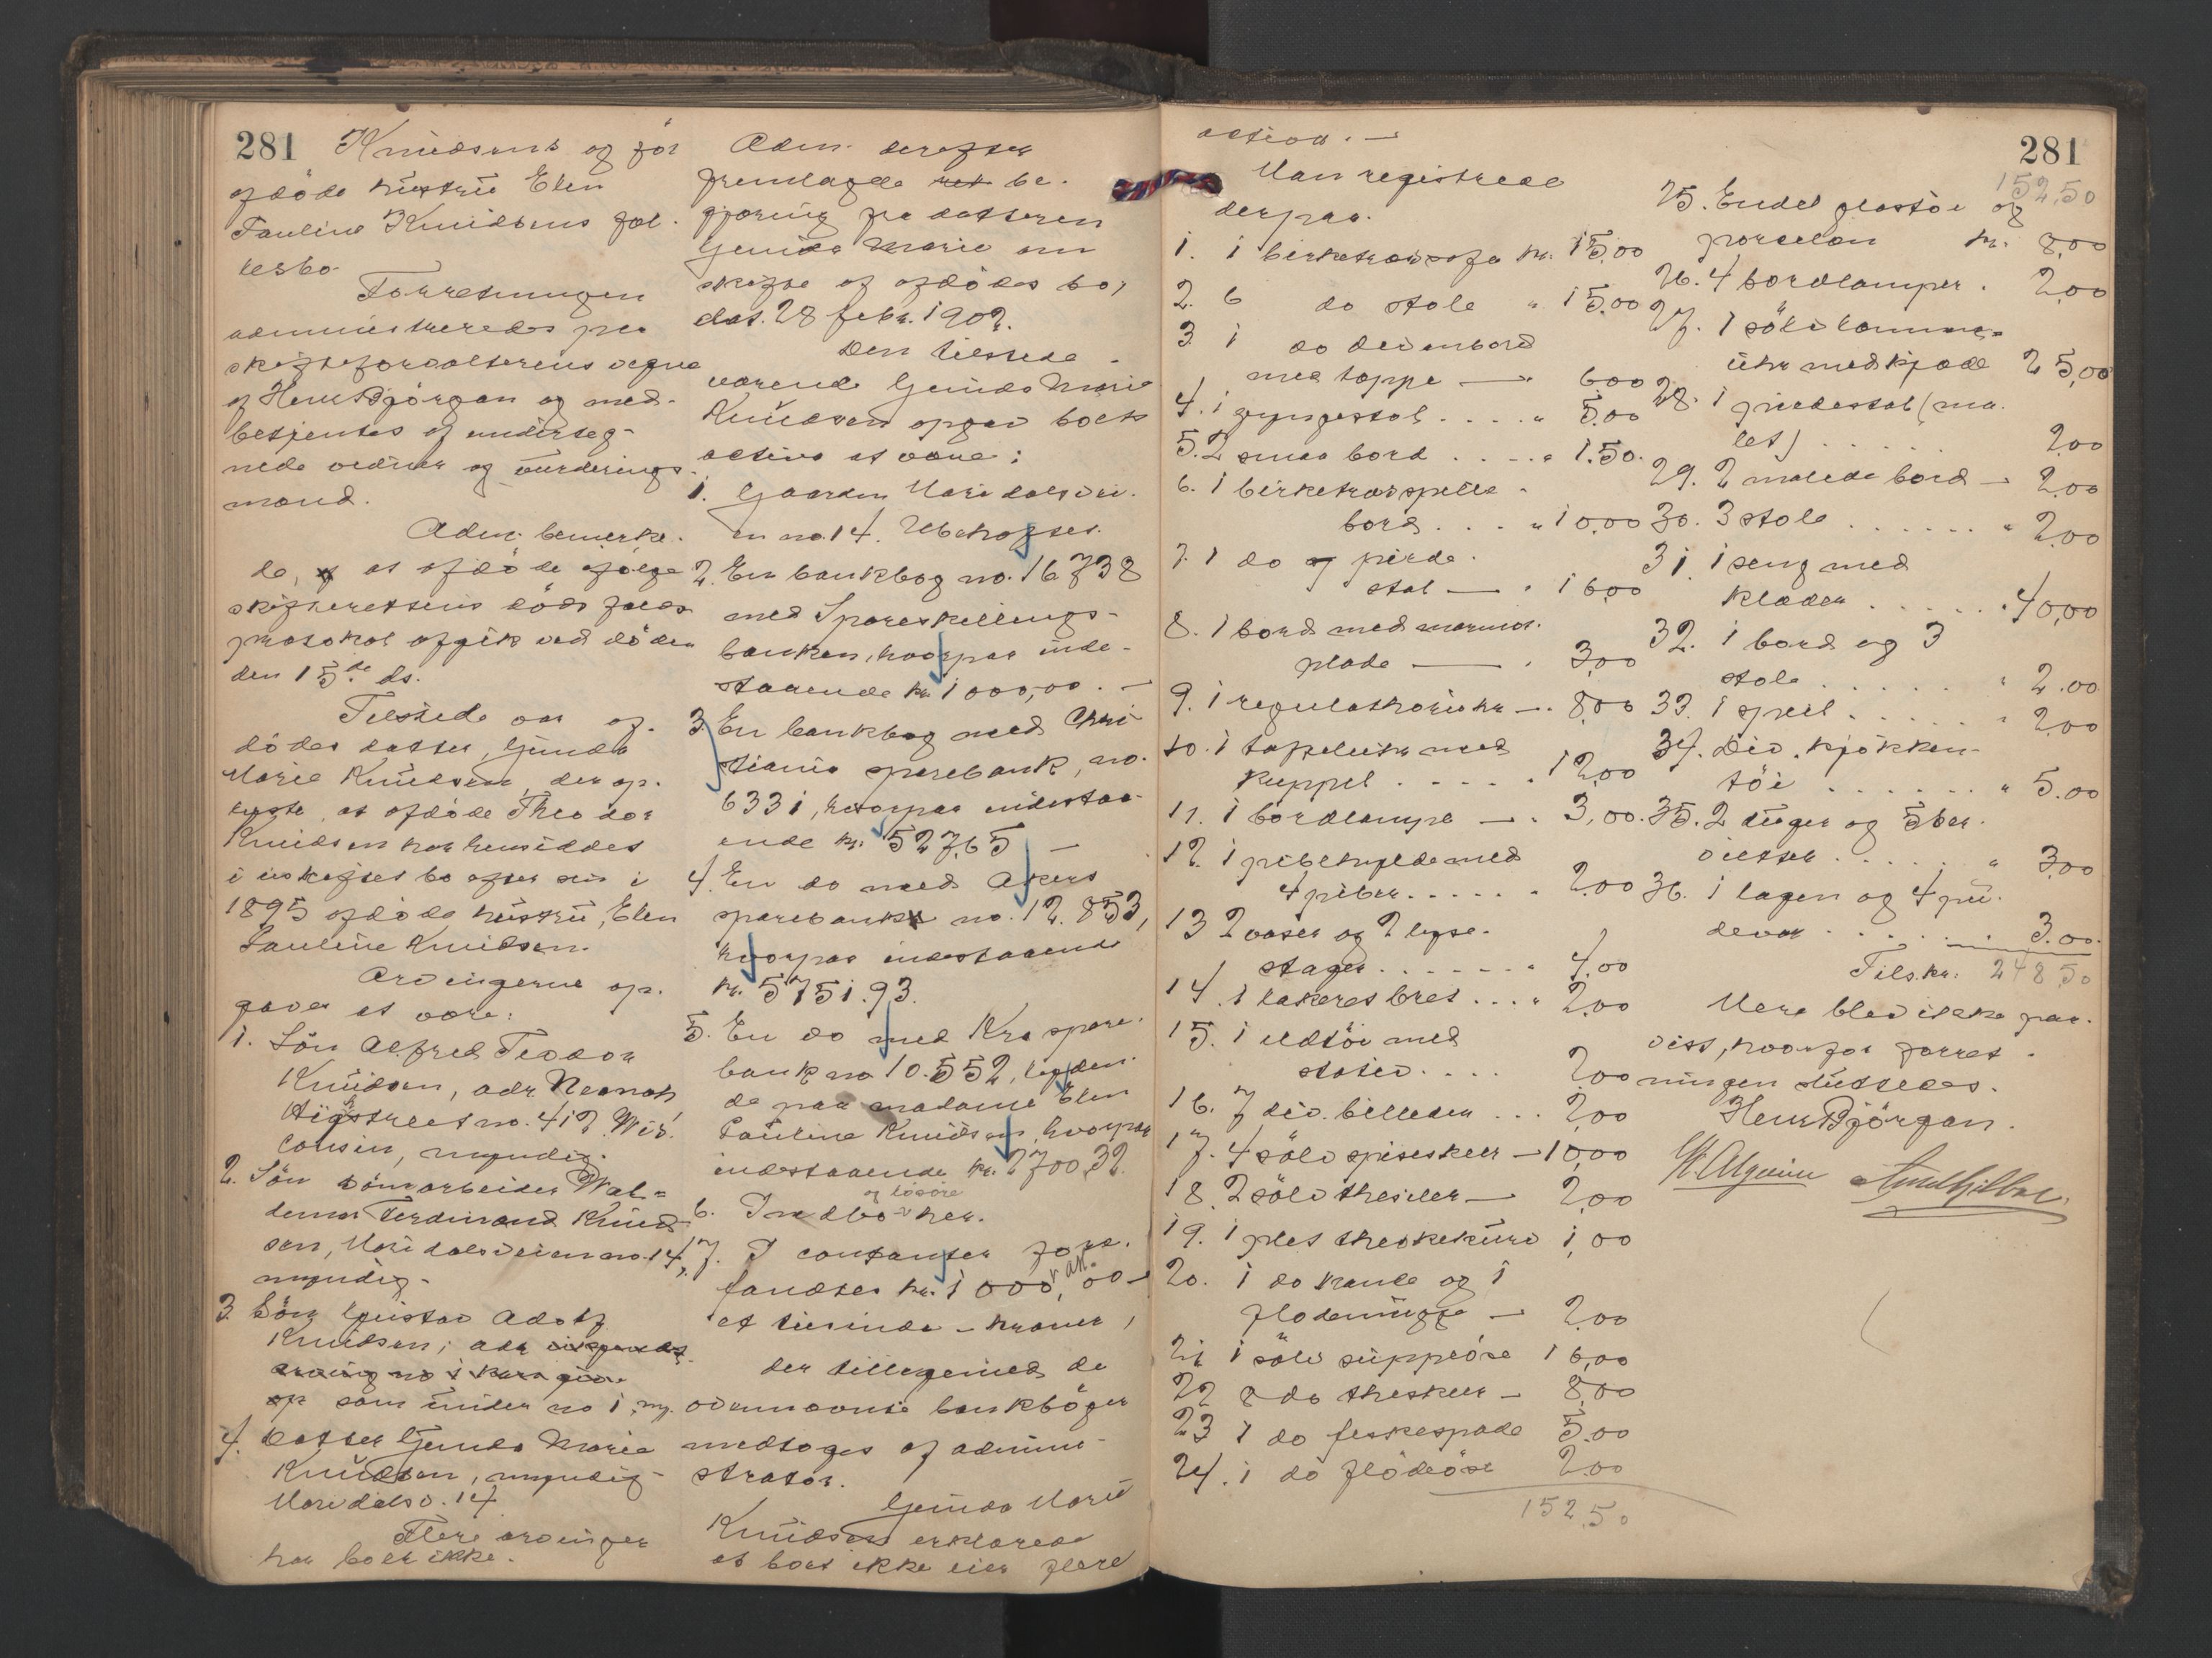 281 Knudsens og før
afdöde hustru Elen
Pauline Knudsens fæl-
lesbo
Forretningen
administreredes paa
skifteforvalterens vegne
af Herm Bjørgan og med-
betjentes af underteg-
nede vidner og vurderings-
mænd.
Adm. bemerke-
de, at afdöde ifølge
skifterettens döds falds
protokol afgik ved döden
den 15de ds.
Tilstede var af-
dödes datter, Gunda
Marie Knudsen, der op-
lyste, at afdöde Theodor
Knudsen har hensiddet
i uskiftet bo efter sin i
1895 afdöde hustru, Elen
Pauline Knudsen.
Arvingerne op-
gaves at være:
1. Sön Alfred Teodor
Knudsen, adr Neenah
Higstreet no. 412 Wis-
consin, myndig.
2. Sön tömarbeider Wal-
demar Ferdinand Knud-
sen, Maridalsveien no. 14,
myndig-
3 Sön Gustav Adolf
Knudsen; adr
som under no 1, my.
4. Datter Gunda Marie
Knudsen, myndig-
Maridalsv. 14
Flere arvinger
har boet ikke.
Adm. derefter
fremlagde ret be-
gjæring fra datteren
Gunda Marie om
skifte af afdödes bo,
dat. 28 febr. 1902.
Den tilstede-
værende Gunda Marie
Knudsen opgav boets
activa at være:
1. Gaarden Maridalsvei-
en no. 14. Ubehæftet.
2. En bankbog no. 16738
med Spareskillings-
banken, hvorpaa inde-
staaende kr. 1000,00. —
3. En bankbog med Chri-
stiania sparebank, no.
6331, hvorpaa indestaa-
ende kr. 527,65 —
4. En do med Akers
sparebank no. 12.853,
hvorpaa indestaaende
kr. 5751.93.
5. En do med Kra spare-
bank no 10.552, lyden-
de paa madame Elen
Pauline Knudsen, hvorpaa
indestaaende kr. 2700,32.
og lösöre
6. Indbo her.
7. I contanter fore-
fandtes kr. 1000,00 —
et tusinde - kroner,
der tilligemed de
ovennævnte bankbøger
medtoges af admini-
strator.
Gunda Marie
Knudsen erklærede
at boet ikke eier flere
activa. —
Man registrede
derpaa.
1. 1 birketræs sofa kr. 15,00
2. 6 do stole " 15.00
3 1 do divanbord
med tæppe — " 6.00
4. 1 gyngestol . . . . " 5.00
5. 2 smaa bord . . . . " 1.50.
6. 1 birketræs spille-
bord . . . " 10,00
7. 1 do pide-
stal — " 16,00
8. 1 bord med marmor-
plade — " 3,00
9. 1 regulatoruhr — " 8,00
10. 1 taffeluhr med
kuppel . . . . . " 12,00
11. 1 bordlampe — " 3,00.
12. 1 pibehylde med
4 piber . . . . . " 2.00
13 2 vaser og 2 lyse-
stager . . . . . . . " 4.00
14. 1 lakeret bret . . . " 2,00
15. 1 ildtöi med
stativ . . . . 2,00
16. 7 div. billeder . . . 2,00
17. 4 sölv spiseskeer — 10,00
18. 2 sölv theskeer — 2,00
19. 1 plet theskekurv 1,00
20. 1 do kande og 1
flödemugge — 2,00
21 1 sölv suppeöse 16,00
22 8 do theskeer — 8,00
23 1 do fiskespade 5.00
24. 1 do flödeöse 2.00
152,50
281
152,50
25. Endel glastöi og
porcelæn kr. 8,00
26. 4 bordlamper . 2,00
27. 1 sölv lomme-
uhr med kjæde 25,00
28. 1 piedestal (ma-
let) . . . . . 2,00
29. 2 malede bord — 2,00
30. 3 stole . . . . . . " 2,00
31. 1 seng med
klæder . . . . . . " 40,00
32. 1 bord og 3
stole . . . . . . " 2.00
33. 1 speil . . . . . . " 2,00
34. Div. kjøkken-
töi . . . . . . . " 5.00
35. 2 duger og 5 ser-
vietter . . . . . " 3,00
36. 1 lagen og 4 pu-
devar . . . . . . 3.00.
Tils. kr. 248,50
Mere blev ikke paa-
vist, hvorfor forret-
ningen sluttedes.
Herm Bjørgan.